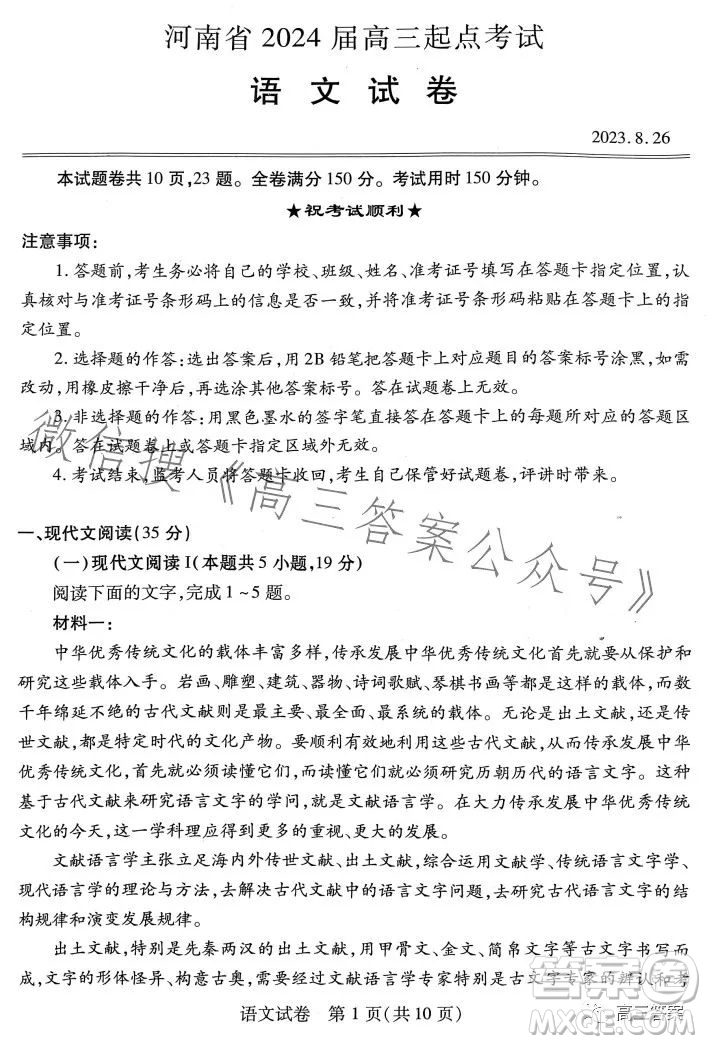 河南省 2024 届高三起点考试
语 文 试 卷
2023.8.26
本试题卷共 10 页,23 题。全卷满分 150 分。考试用时 150 分钟。
★祝考试顺利★
注意事项:
1. 答题前,考生务必将自己的学校、班级、姓名、准考证号填写在答题卡指定位置,认
真核对与准考证号条形码上的信息是否一致,并将准考证号条形码粘贴在答题卡上的指
定位置。
2. 选择题的作答:选出答案后,用 2B 铅笔把答题卡上对应题目的答案标号涂黑,如需
改动,用橡皮擦干净后,再选涂其他答案标号。答在试题卷上无效。
3. 非选择题的作答:用黑色墨水的签字笔直接答在答题卡上的每题所对应的答题区
域内。答在试题卷上或答题卡指定区域外无效。
4. 考试结束,监考人员将答题卡收回,考生自己保管好试题卷,评讲时带来。
微信搜《高三答案公众号》
一、现代文阅读(35 分)
(一)现代文阅读 I(本题共 5 小题,19 分)
阅读下面的文字,完成 1~5 题。
材料一:
中华优秀传统文化的载体丰富多样,传承发展中华优秀传统文化首先就要从保护和
研究这些载体入手。岩画、雕塑、建筑、器物、诗词歌赋、琴棋书画等都是这样的载体,而数
千年绵延不绝的古代文献则是最主要、最全面、最系统的载体。无论是出土文献,还是传
世文献,都是特定时代的文化产物。要顺利有效地利用这些古代文献,从而传承发展中华
优秀传统文化,首先就必须读懂它们,而读懂它们就必须研究历朝历代的语言文字。这种
基于古代文献来研究语言文字的学问,就是文献语言学。在大力传承发展中华优秀传统
文化的今天,这一学科理应得到更多的重视、更大的发展。
文献语言学主张立足海内外传世文献、出土文献,综合运用文献学、传统语言文字学、
现代语言学的理论与方法,去解决古代文献中的语言文字问题,去研究古代语言文字的结
构规律和演变发展规律。
出土文献,特别是先秦两汉的出土文献,用甲骨文、金文、简帛文字等古文字书写而
成,文字的形体怪异、构意古奥,需要经过文献语言学专家特别是古文字专家的辨认和考
语文试卷 第 1 页(共 10 页)
高三答案
答案圈
MXQE.COM